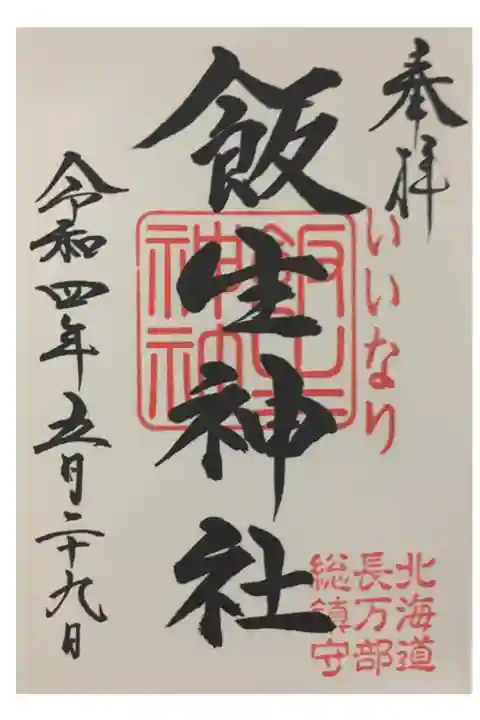 奉拝
いいなり
北海道
長万部
総鎮守
飯生神社
飯生
神社
令和四年五月二十九日